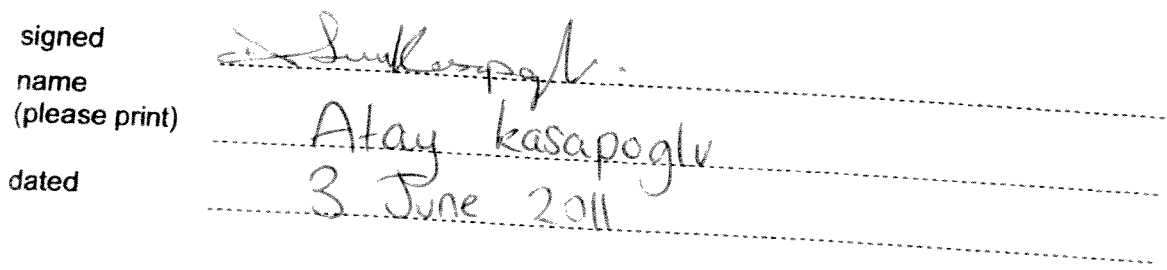 signed
name
(please print) Atay kasapoglu
dated 3 June 2011